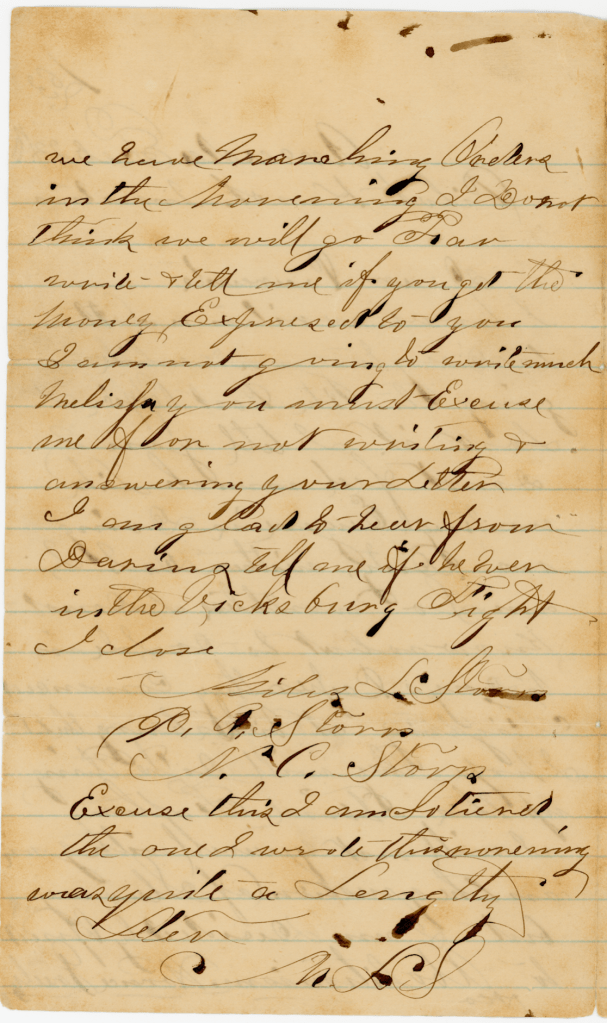 we have Marching Orders
in the Morening I Do not
think we will go Far
write & tell me if you get the
Money Expresed to you
I am not going to write much
Melissa you must Excuse
me for not writing &
answering your Letter
I am glad to hear from
Daring tell me if he wer
in the Vicksburg Fight
I close
Miles L. Storrs
N. C. Storrs
Excuse this I am So tierd
the one I wrote this morening
was quite a Lengthy
Leter
M L S